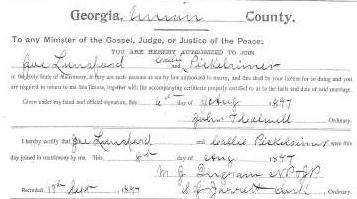 Georgia, Union County.
To any Minister of the Gospel, Judge, or Justice of the Peace:
YOU ARE HEREBY AUTHORIZED TO JOIN
Joe Lunsford and Callie Pickelsimer
in the Holy State of Matrimony, if they are such persons as are by law authorized to marry, and this shall be your license for so doing and you
are required to return to me this license, together with the accompanying certificate properly certified to as to the facts and date of said marriage.
Given under my hand and official signature, this 6th day of Aug 1897
John T Colwell Ordinary.
I hereby certify that Joe Lunsford and Callie Pickelsimer were this
day joined in matrimony by me. This 8th day of Aug 1897
M J Ingram NP&JP
Recorded 19th Sept 1897 Jarrett Clerk, Ordinary.